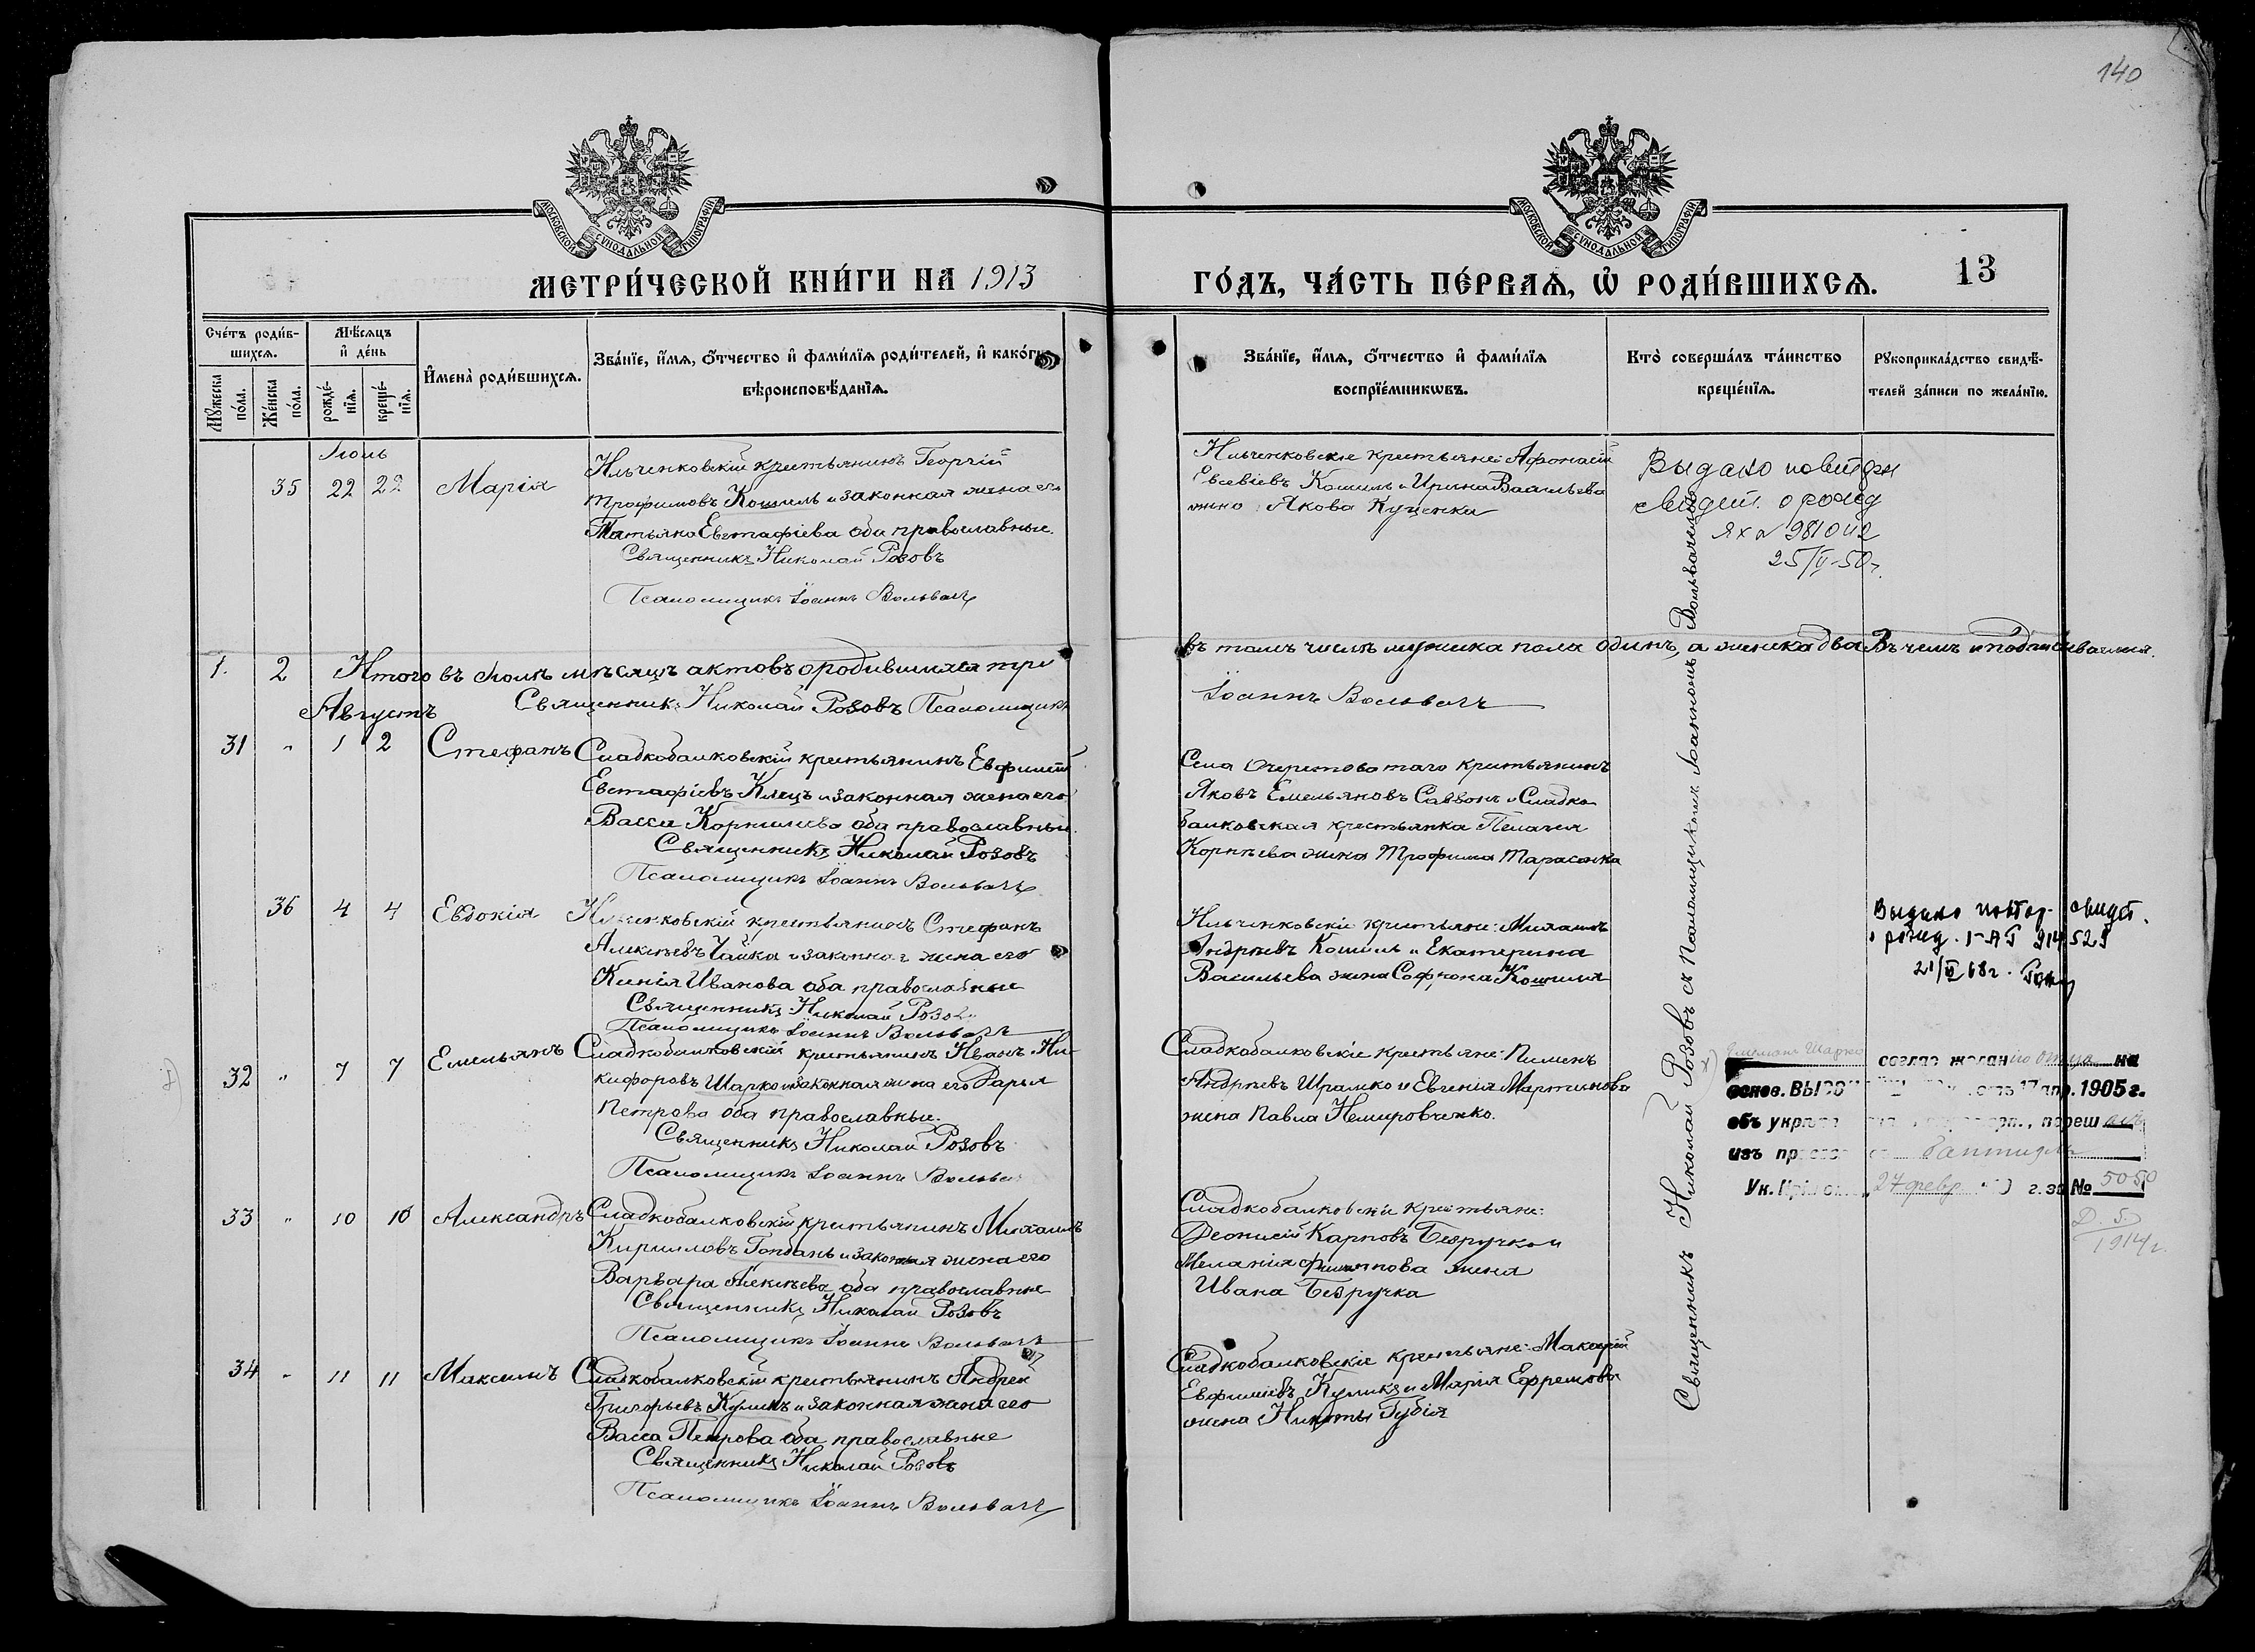 140
МОСКОВСКОЙ СУНОДАЛЬНОЙ ТИПОГРАФІИ
МОСКОВСКОЙ СУНОДАЛЬНОЙ ТИПОГРАФІИ
МЕТРИ́ЧЕСКОЙ КНИ́ГИ НА 1913
ГО́ДЪ, ЧА́СТЬ ПЕ́РВАѦ, Ѡ҆ РОДИ́ВШИХСѦ.
13
Сче́тъ роди́в-
шихсѧ.
Мꙋ́жеска
по́ла.
Же́нска
по́ла.
Мѣ́сѧцъ
и҆ де́нь
рожде́-
нїѧ.
креще́-
нїѧ.
И҆мена̀ роди́вшихсѧ.
Зва́нїе, и҆́мѧ, ѻ҆́тчество и҆ фами́лїѧ роди́телей, и҆ како́гѡ
вѣроисповѣ́данїѧ.
Зва́нїе, и҆́мѧ, ѻ҆́тчество и҆ фами́лїѧ
воспрїе́мникѡвъ.
Кто̀ соверша́лъ та́инство
креще́нїѧ.
Рꙋкоприкла́дство свидѣ́-
телей за́писи по жела́нїю.
Іюль
35 22 22 Марія
Ильченковскій крестьянинъ Георгій
Трофимовъ Кошиль и законная жена его
Татьяна Евстафіева оба православные.
Священникъ Николай Розовъ
Псаломщикъ Іоаннъ Вольвачъ
Ильченковскіе крестьяне: Афонасій
Евсевіевъ Кошиль и Ирина Васильева
жена Якова Куценка
Выдано повторн
свидет. о рожд
981042
25/V-50г.
1. 2 Итого въ Іюлѣ мѣсяцѣ актовъ о родившихся три
въ томъ числѣ мужска пола одинъ, а женска два. Въ чемъ и подписываемся.
Священникъ Николай Розовъ Псаломщикъ
Іоаннъ Вольвачъ
Августъ
31 " 1 2 Стефанъ
Сладкобалковскій крестьянинъ Евфимій
Евстафіевъ Клецъ и законная жена его
Васса Корнилиева оба православные.
Священникъ Николай Розовъ
Псаломщикъ Іоаннъ Вольвачъ
Села Очеретоватаго крестьянинъ
Яковъ Емельяновъ Саввонъ и Сладко
балковская крестьянка Пелагея
Корнѣева жена Трофима Тарасенка
36 4 4 Евдокія
Ильченковскій крестьянинъ Стефанъ
Алексѣевъ Чайка и законная жена его
Ксенія Иванова оба православные
Священникъ Николай Розовъ
Псаломщикъ Іоаннъ Вольвачъ
Ильченковскіе крестьяне: Михаилъ
Андрѣевъ Кошиль и Екатерина
Васильева жена Софрона Кошиля
Выдано повтор. свидет.
о рожд. 1-АГ 914529
68г.
32 " 7 7 Емельянъ
Сладкобалковскій крестьянинъ Иванъ Ни-
кифоровъ Шарко и законная жена его Дарья
Петрова оба православные.
Священникъ Николай Розовъ
Псаломщикъ Іоаннъ Вольва
Сладкобалковскіе крестьяне: Пименъ
Андрѣевъ Шрамко и Евгенія Мартинова
жена Павла Немировченко.
Шарко соглас желанію отца на
основ. ВЫСО 17 апр. 1905 г.
объ укрѣпл , переш
изъ пр баптизмъ
27 февр г. за № 5050
Д. 5
1914 г.
33 " 10 10 Александръ
Сладкобалковскій крестьянинъ Михаилъ
Кирилловъ Гопданъ и законная жена его
Варвара Алексѣева оба православные
Священникъ Николай Розовъ
Псаломщикъ Іоаннъ Вольвачъ
Сладкобалковскіе крестьяне:
Деонисій Карповъ Безручко и
Меланія Филиппова жена
Ивана Безручка
34 " 11 11 Максимъ
Сладкобалковскій крестьянинъ Андрей
Григорьевъ Куликъ и законная жена его
Васса Петрова оба православные
Священникъ Николай Розовъ
Псаломщикъ Іоаннъ Вольвачъ
Сладкобалковскіе крестьяне: Макарій
Евфиміевъ Куликъ и Марія Ефремова
жена Никиты Губія
Священникъ Николай Розовъ съ Псаломщикомъ Іоанномъ Вольвачемъ